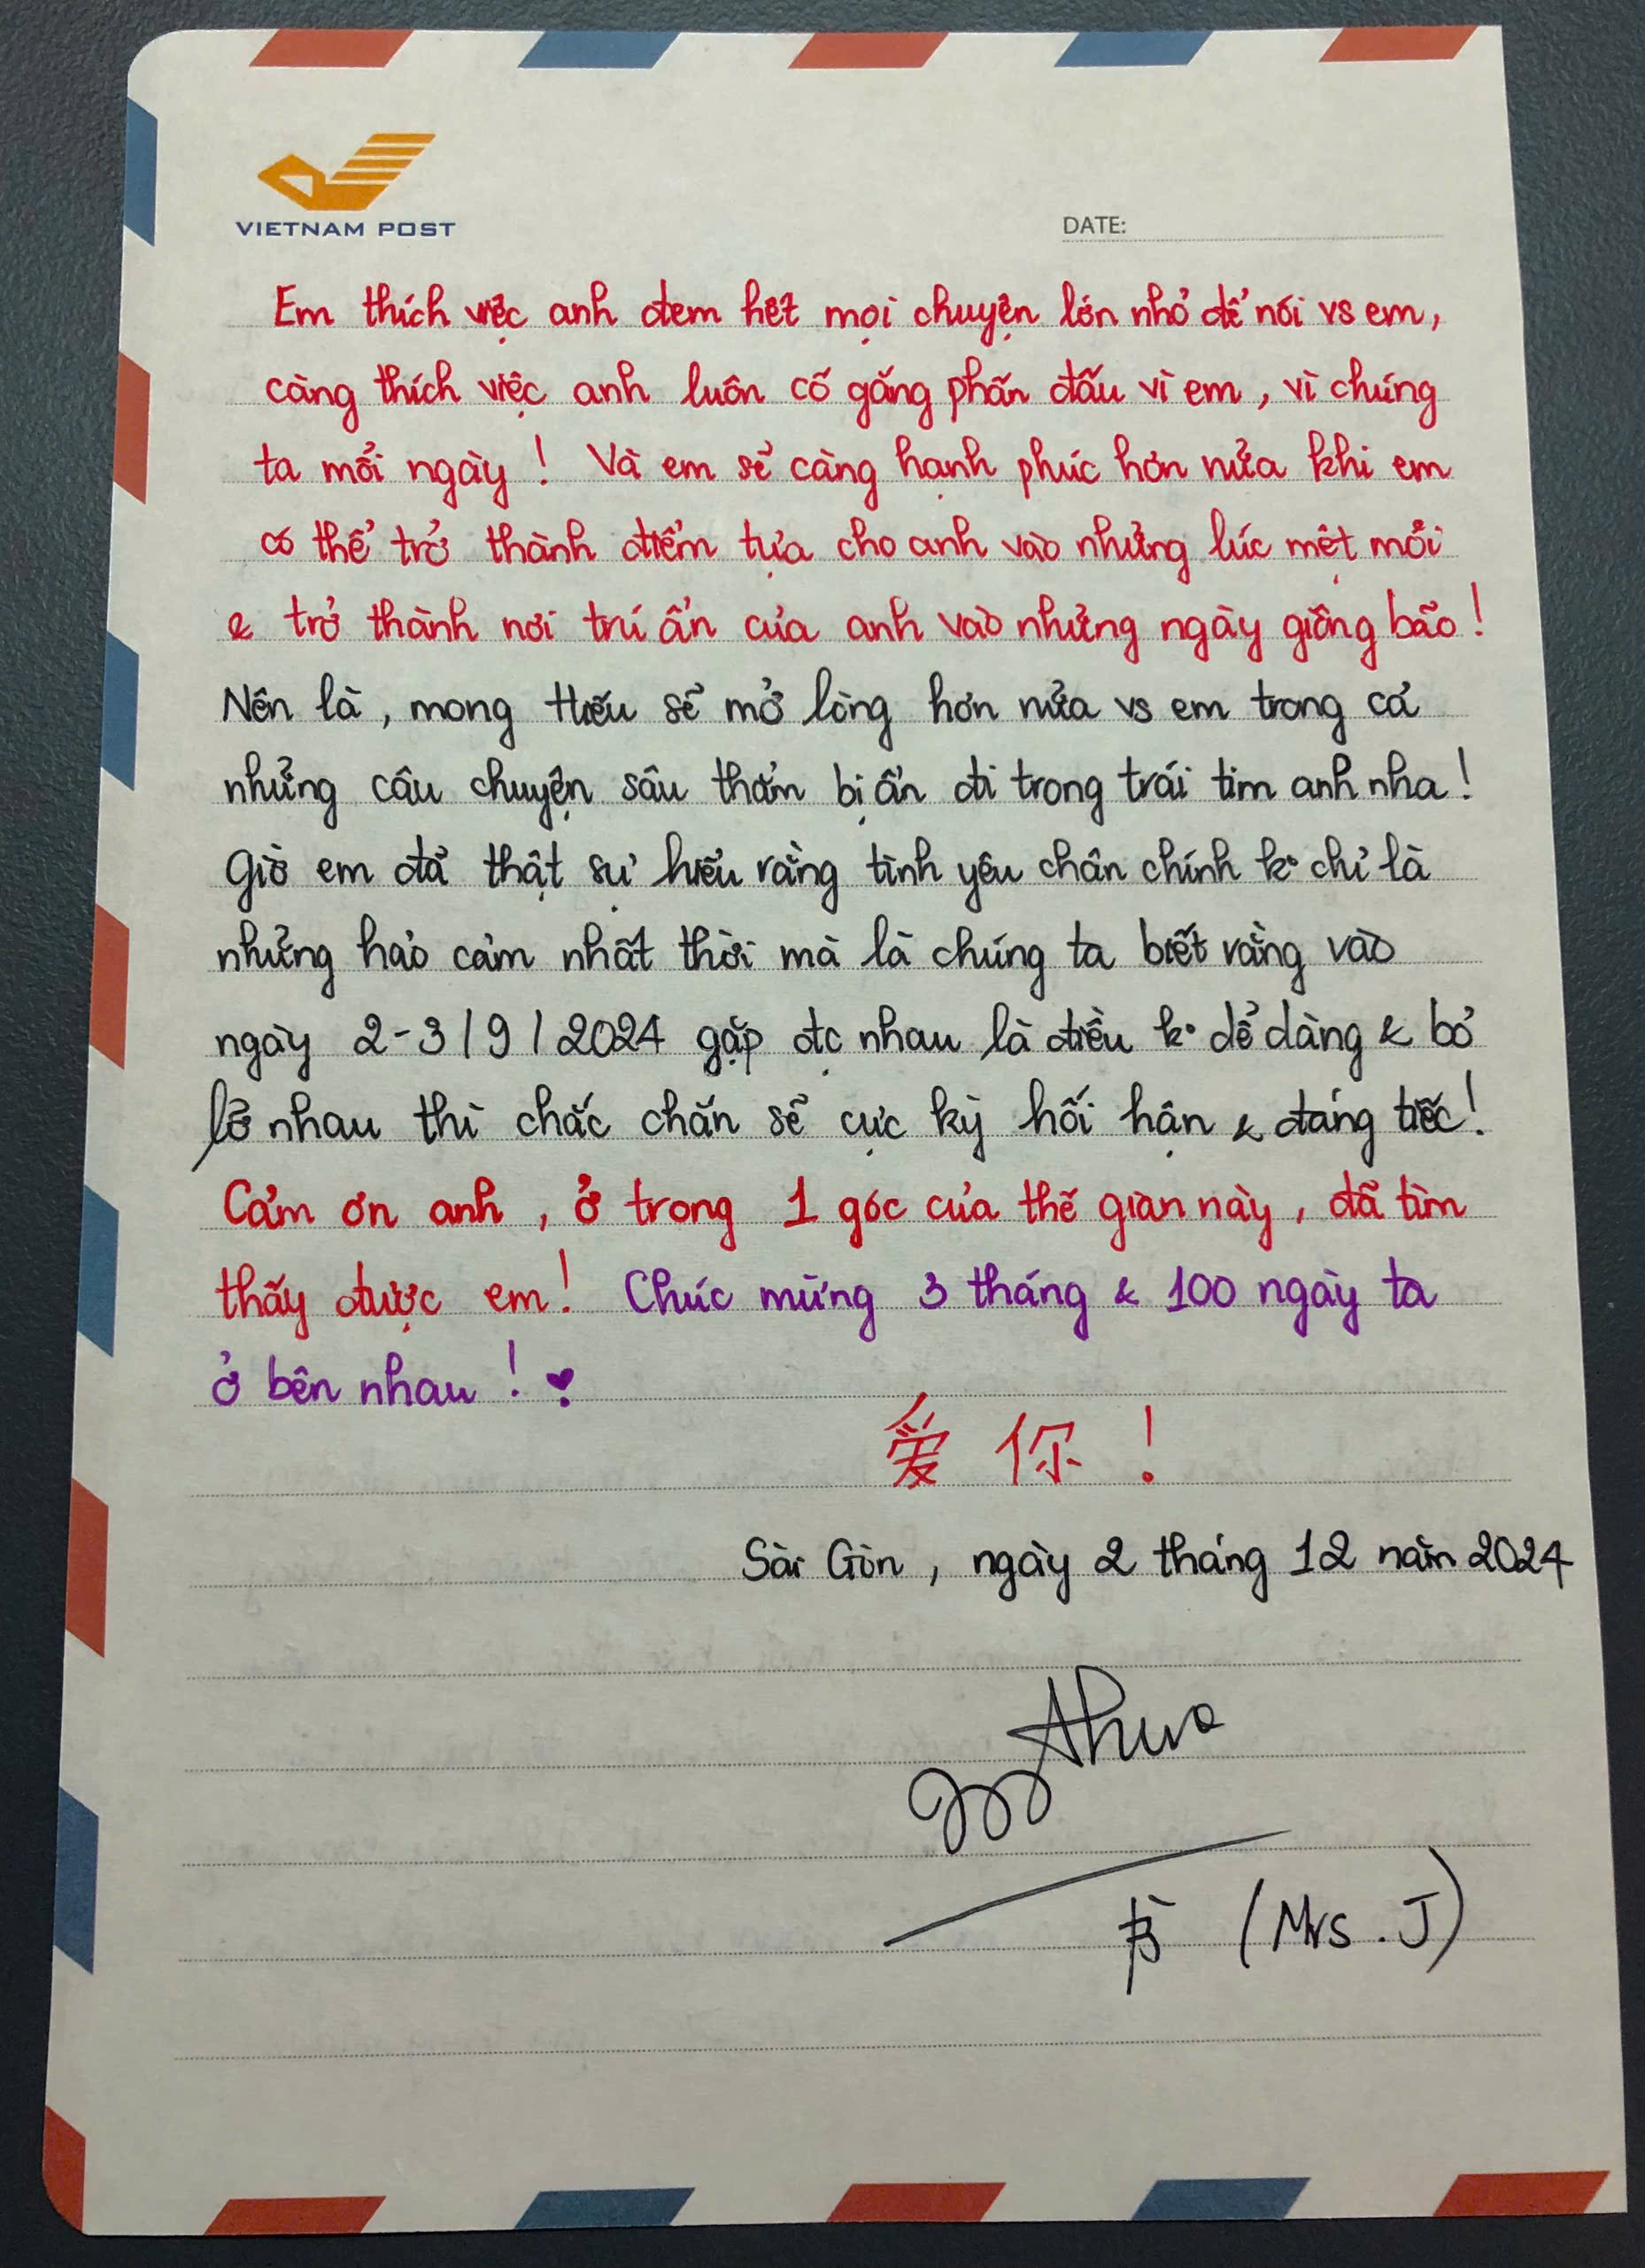 VIETNAM POST
DATE:
Em thích việc anh đem hết mọi chuyện lớn nhỏ để nói vs em,
càng thích việc anh luôn cố gắng phấn đấu vì em, vì chúng
ta mổi ngày! Và em sẻ càng hạnh phúc hơn nửa khi em
có thể trở thành điểm tựa cho anh vào những lúc mệt mỏi
& trở thành nơi trú ẩn của anh vào những ngày giông bão!
Nên là, mong Hiếu sẻ mở lòng hơn nửa vs em trong cả
những câu chuyện sâu thẳm bị ẩn đi trong trái tim anh nha!
Giờ em đả thật sự hiểu rằng tình yêu chân chính k° chỉ là
những hảo cảm nhất thời mà là chúng ta biết rằng vào
ngày 2-3/9/2024 gặp đc nhau là điều k° dể dàng & bỏ
lở nhau thì chắc chắn sẻ cực kỳ hối hận & đáng tiếc!
Cảm ơn anh, ở trong 1 góc của thế gian này, đã tìm
thấy được em! Chúc mừng 3 tháng & 100 ngày ta
ở bên nhau! ♥
爱你!
Sài Gòn, ngày 2 tháng 12 năm 2024
(Mrs. J)